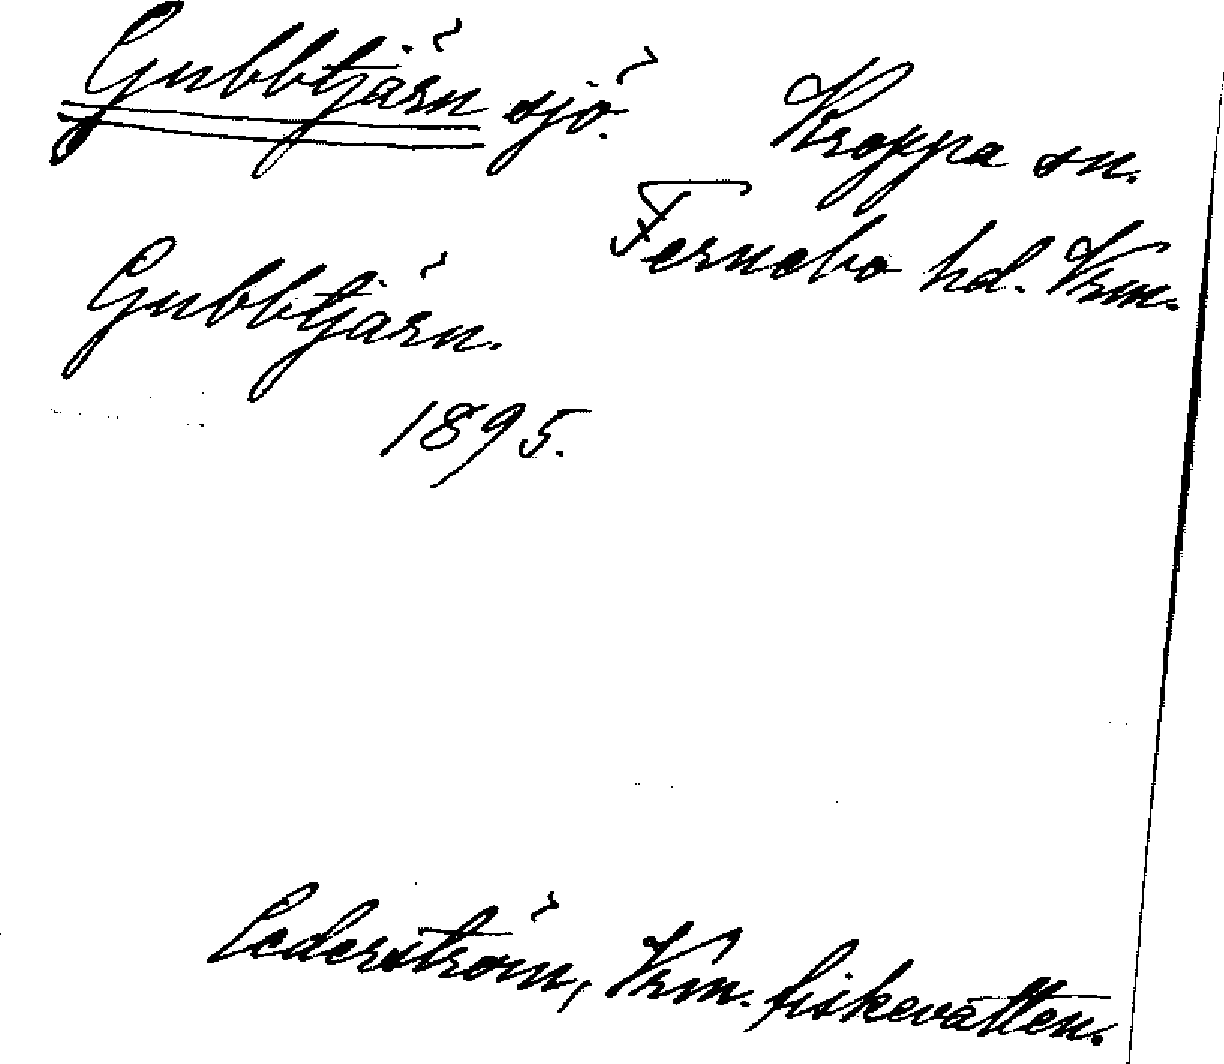 Gubbtjärn sjö.
Kroppa sn.
Fernebo hd. Vrm.
Gubbtjärn.
1895.
Cederström, Vrm. fiskevatten.